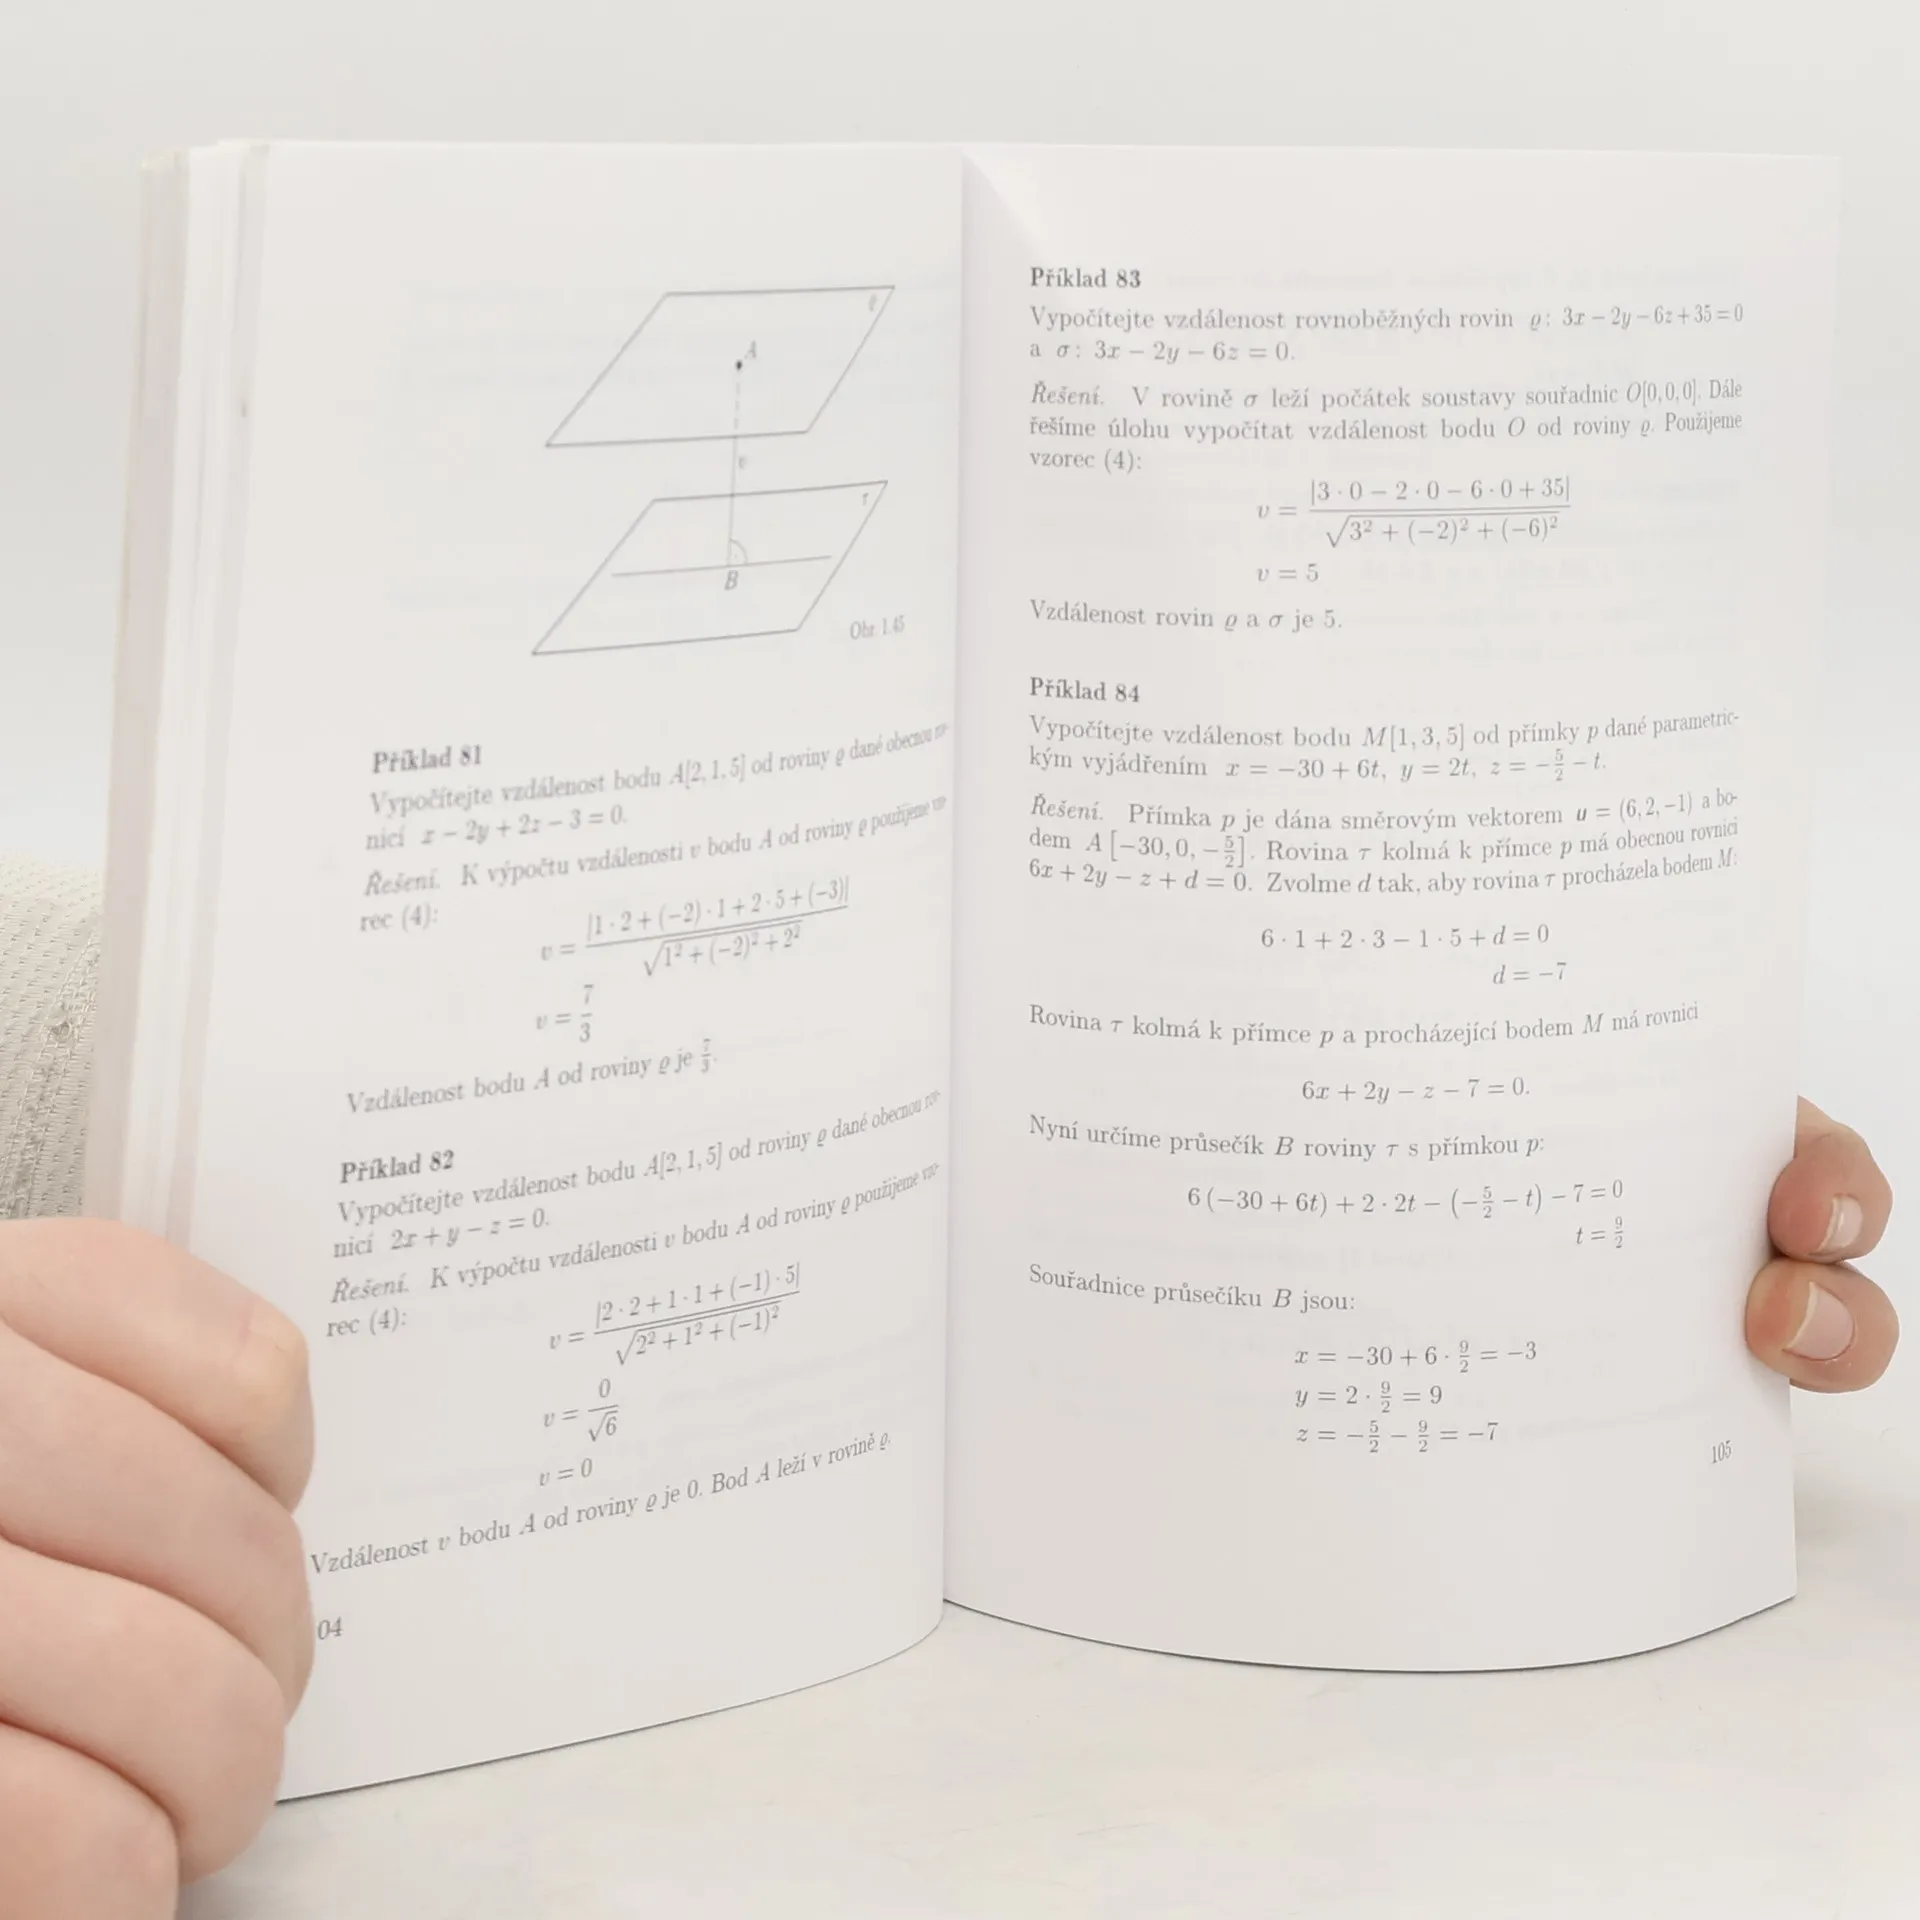 ϱ
A
v
τ
B
Obr. 1.45
Příklad 81
Vypočítejte vzdálenost bodu A[2, 1, 5] od roviny ϱ dané obecnou rov-
nicí x − 2y + 2z − 3 = 0.
Řešení. K výpočtu vzdálenosti v bodu A od roviny ϱ použijeme vzo-
rec (4):
v = |1 · 2 + (−2) · 1 + 2 · 5 + (−3)| / √(1² + (−2)² + 2²)
v = 7/3
Vzdálenost bodu A od roviny ϱ je 7/3.
Příklad 82
Vypočítejte vzdálenost bodu A[2, 1, 5] od roviny ϱ dané obecnou rov-
nicí 2x + y − z = 0.
Řešení. K výpočtu vzdálenosti v bodu A od roviny ϱ použijeme vzo-
rec (4):
v = |2 · 2 + 1 · 1 + (−1) · 5| / √(2² + 1² + (−1)²)
v = 0/√6
v = 0
Vzdálenost v bodu A od roviny ϱ je 0. Bod A leží v rovině ϱ.
04
Příklad 83
Vypočítejte vzdálenost rovnoběžných rovin ϱ: 3x − 2y − 6z + 35 = 0
a σ: 3x − 2y − 6z = 0.
Řešení. V rovině σ leží počátek soustavy souřadnic O[0, 0, 0]. Dále
řešíme úlohu vypočítat vzdálenost bodu O od roviny ϱ. Použijeme
vzorec (4):
v = |3 · 0 − 2 · 0 − 6 · 0 + 35| / √(3² + (−2)² + (−6)²)
v = 5
Vzdálenost rovin ϱ a σ je 5.
Příklad 84
Vypočítejte vzdálenost bodu M[1, 3, 5] od přímky p dané parametric-
kým vyjádřením x = −30 + 6t, y = 2t, z = −5/2 − t.
Řešení. Přímka p je dána směrovým vektorem u = (6, 2, −1) a bo-
dem A [−30, 0, −5/2]. Rovina τ kolmá k přímce p má obecnou rovnici
6x + 2y − z + d = 0. Zvolme d tak, aby rovina τ procházela bodem M:
6 · 1 + 2 · 3 − 1 · 5 + d = 0
d = −7
Rovina τ kolmá k přímce p a procházející bodem M má rovnici
6x + 2y − z − 7 = 0.
Nyní určíme průsečík B roviny τ s přímkou p:
6 (−30 + 6t) + 2 · 2t − (−5/2 − t) − 7 = 0
t = 9/2
Souřadnice průsečíku B jsou:
x = −30 + 6 · 9/2 = −3
y = 2 · 9/2 = 9
z = −5/2 − 9/2 = −7
105